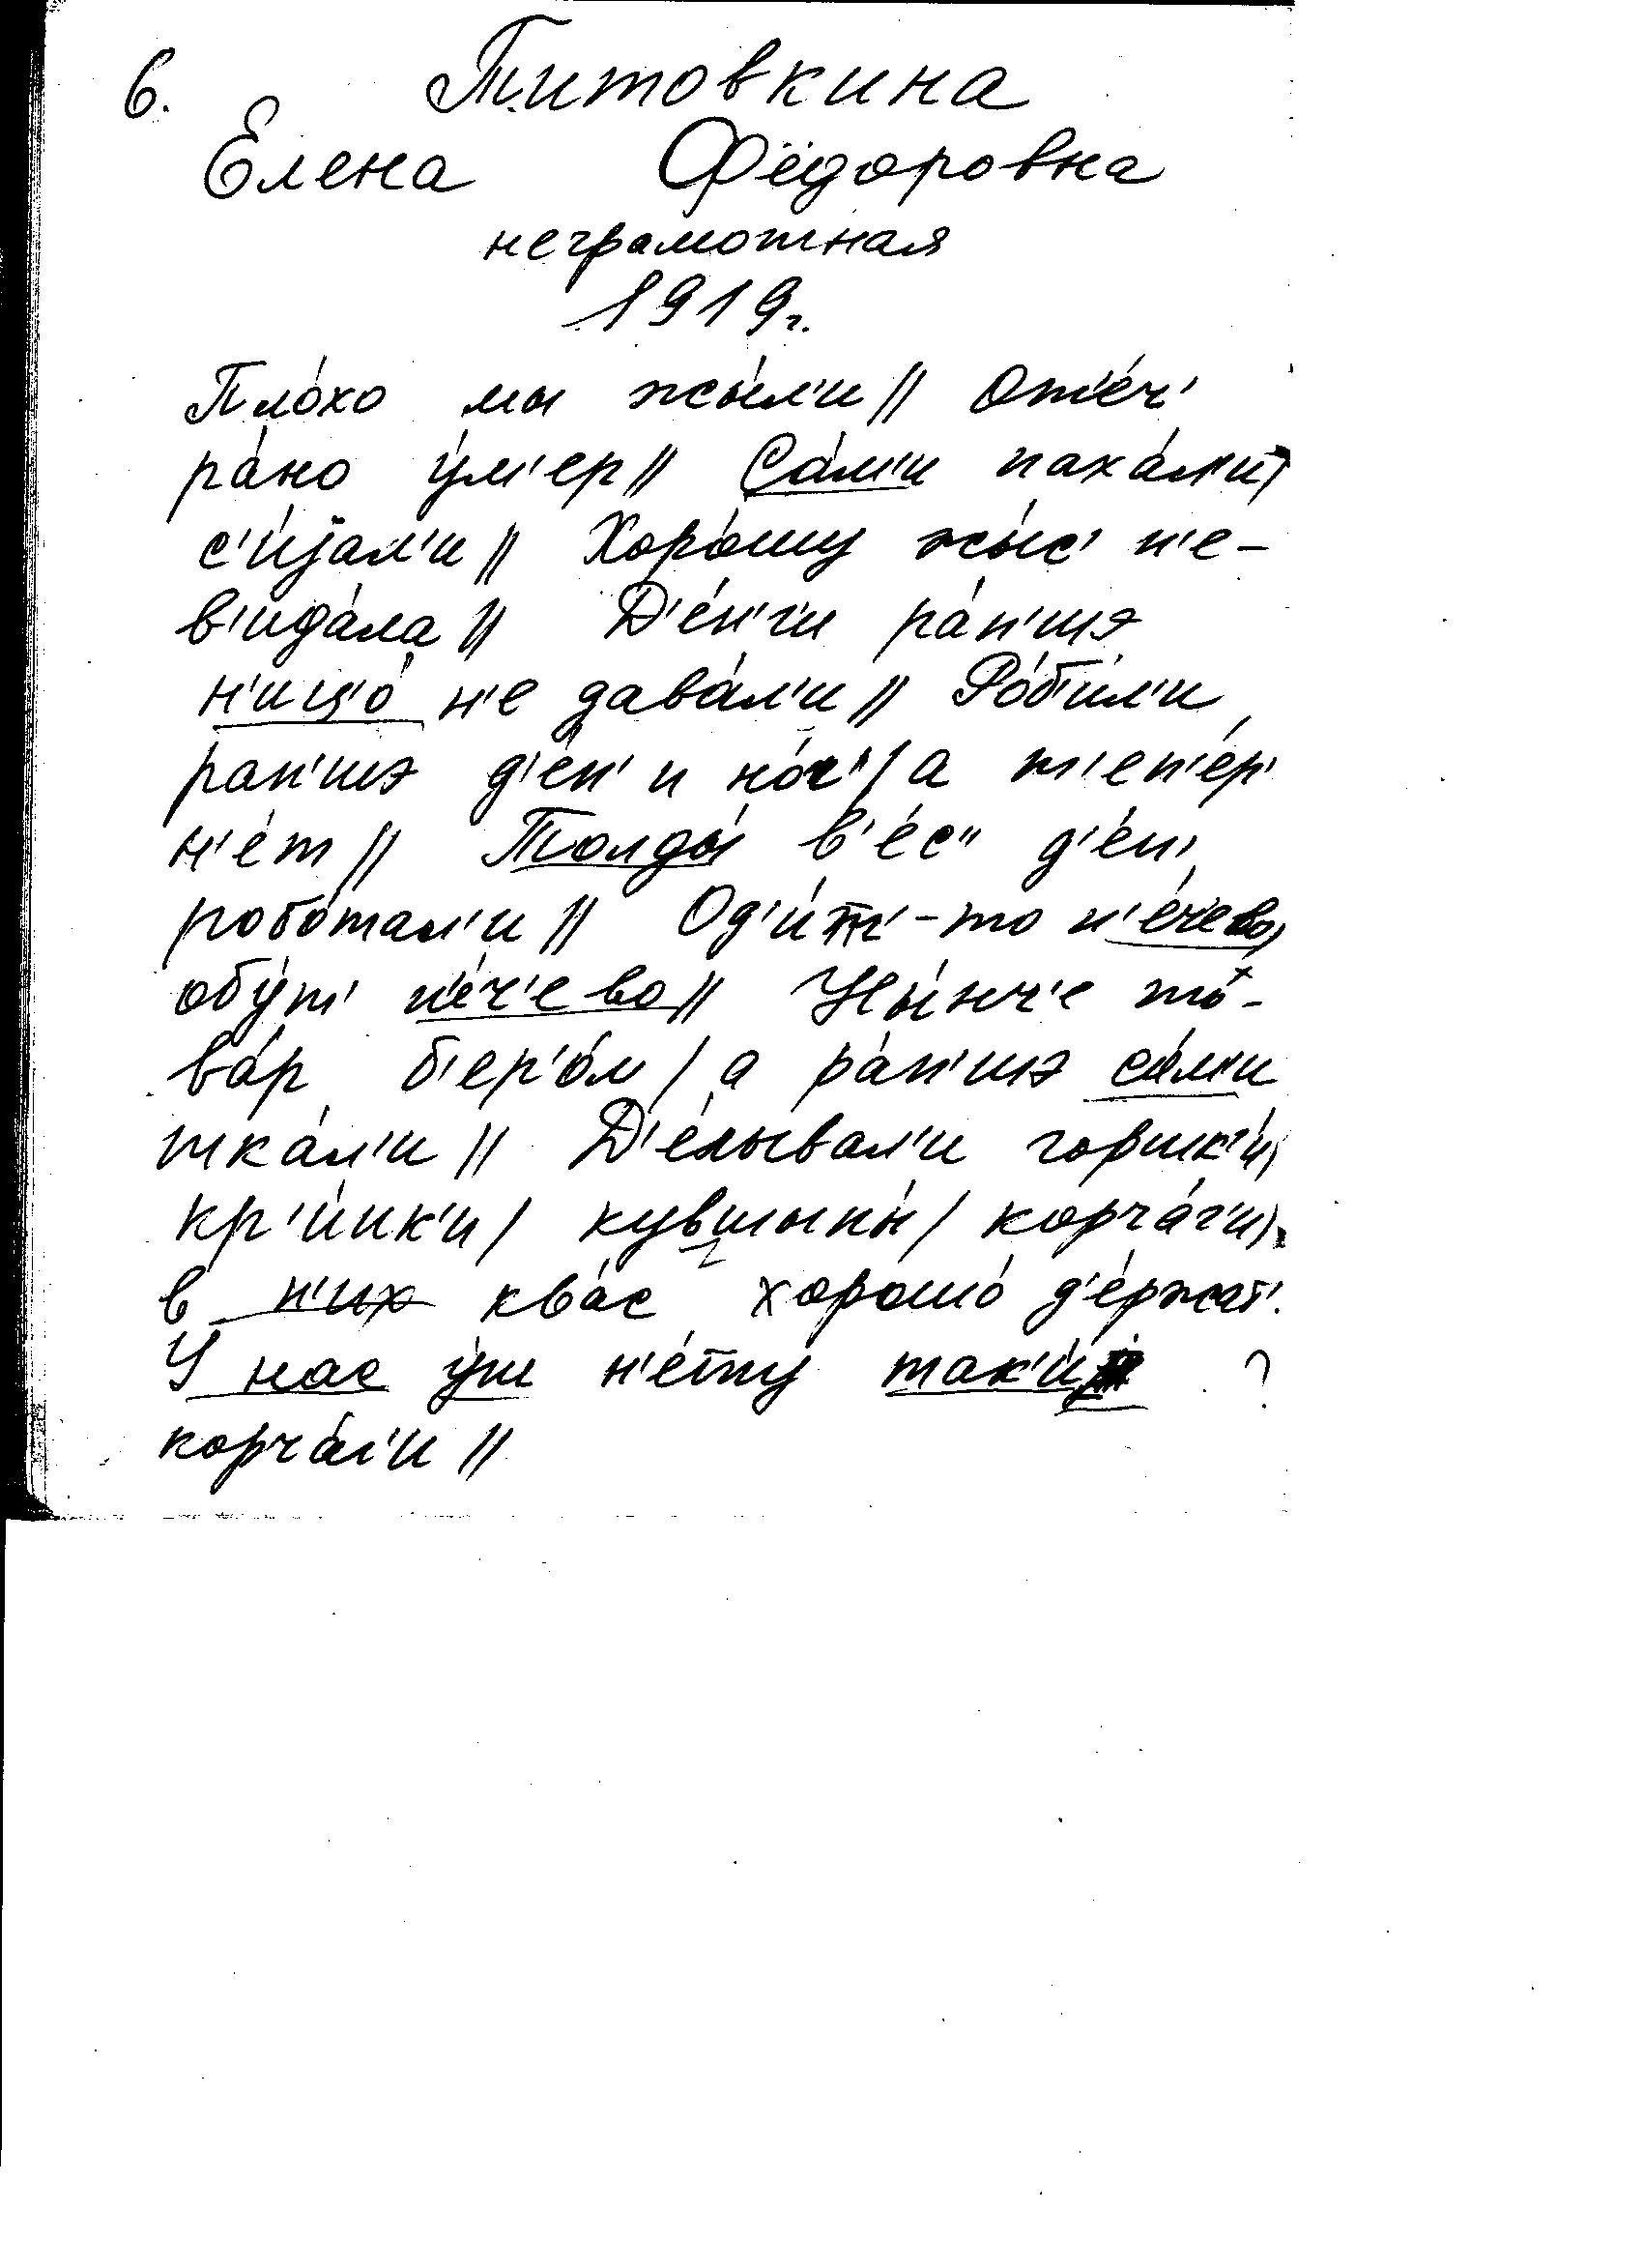 6. Титовкина
Елена Фёдоровна
неграмотная
1919г.
Пло́хо мы жы́л'и // От'е́ч'
ра́но у́м'ер // Са́м'и паха́л'и /
с'и́јал'и // Хоро́шу жы́с' н'е-
в'ида́ла // Д'е́н'г'и ра́н'шэ
н'ищ'о́ н'е дава́л'и // Ро́б'ил'и
ран'шэ д'е́н' и но́ч' / а т'еп'е́р'
н'е́т // Толды́ в'е́с' д'е́н'
робо́тал'и // Од'и́т'-то н'е́чево /
обу́т' н'е́ч'ево // Ны́нч'е то-
ва́р б'ер'о́м / а ра́н'шэ са́м'и
тка́л'и // Д'е́лывал'и горшк'и́ /
кр'и́нк'и / кувшыны́ / корча́г'и /
в н'их ква́с хорошо́ д'е́ржат'.
У нас у́ш н'е́ту так'и́ ?
корча́г'и //